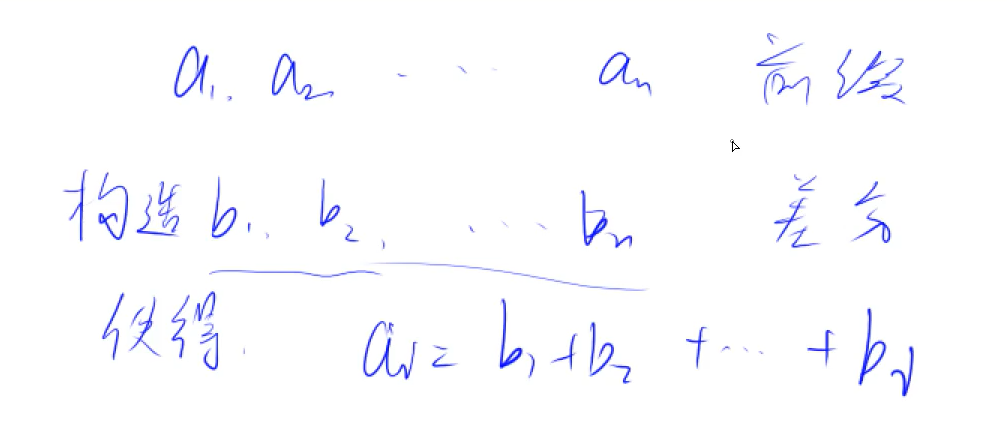 a₁, a₂ ... aₙ 前缀
构造 b₁, b₂, ... bₙ 差分
使得 aᵢ = b₁ + b₂ + ... + bᵢ